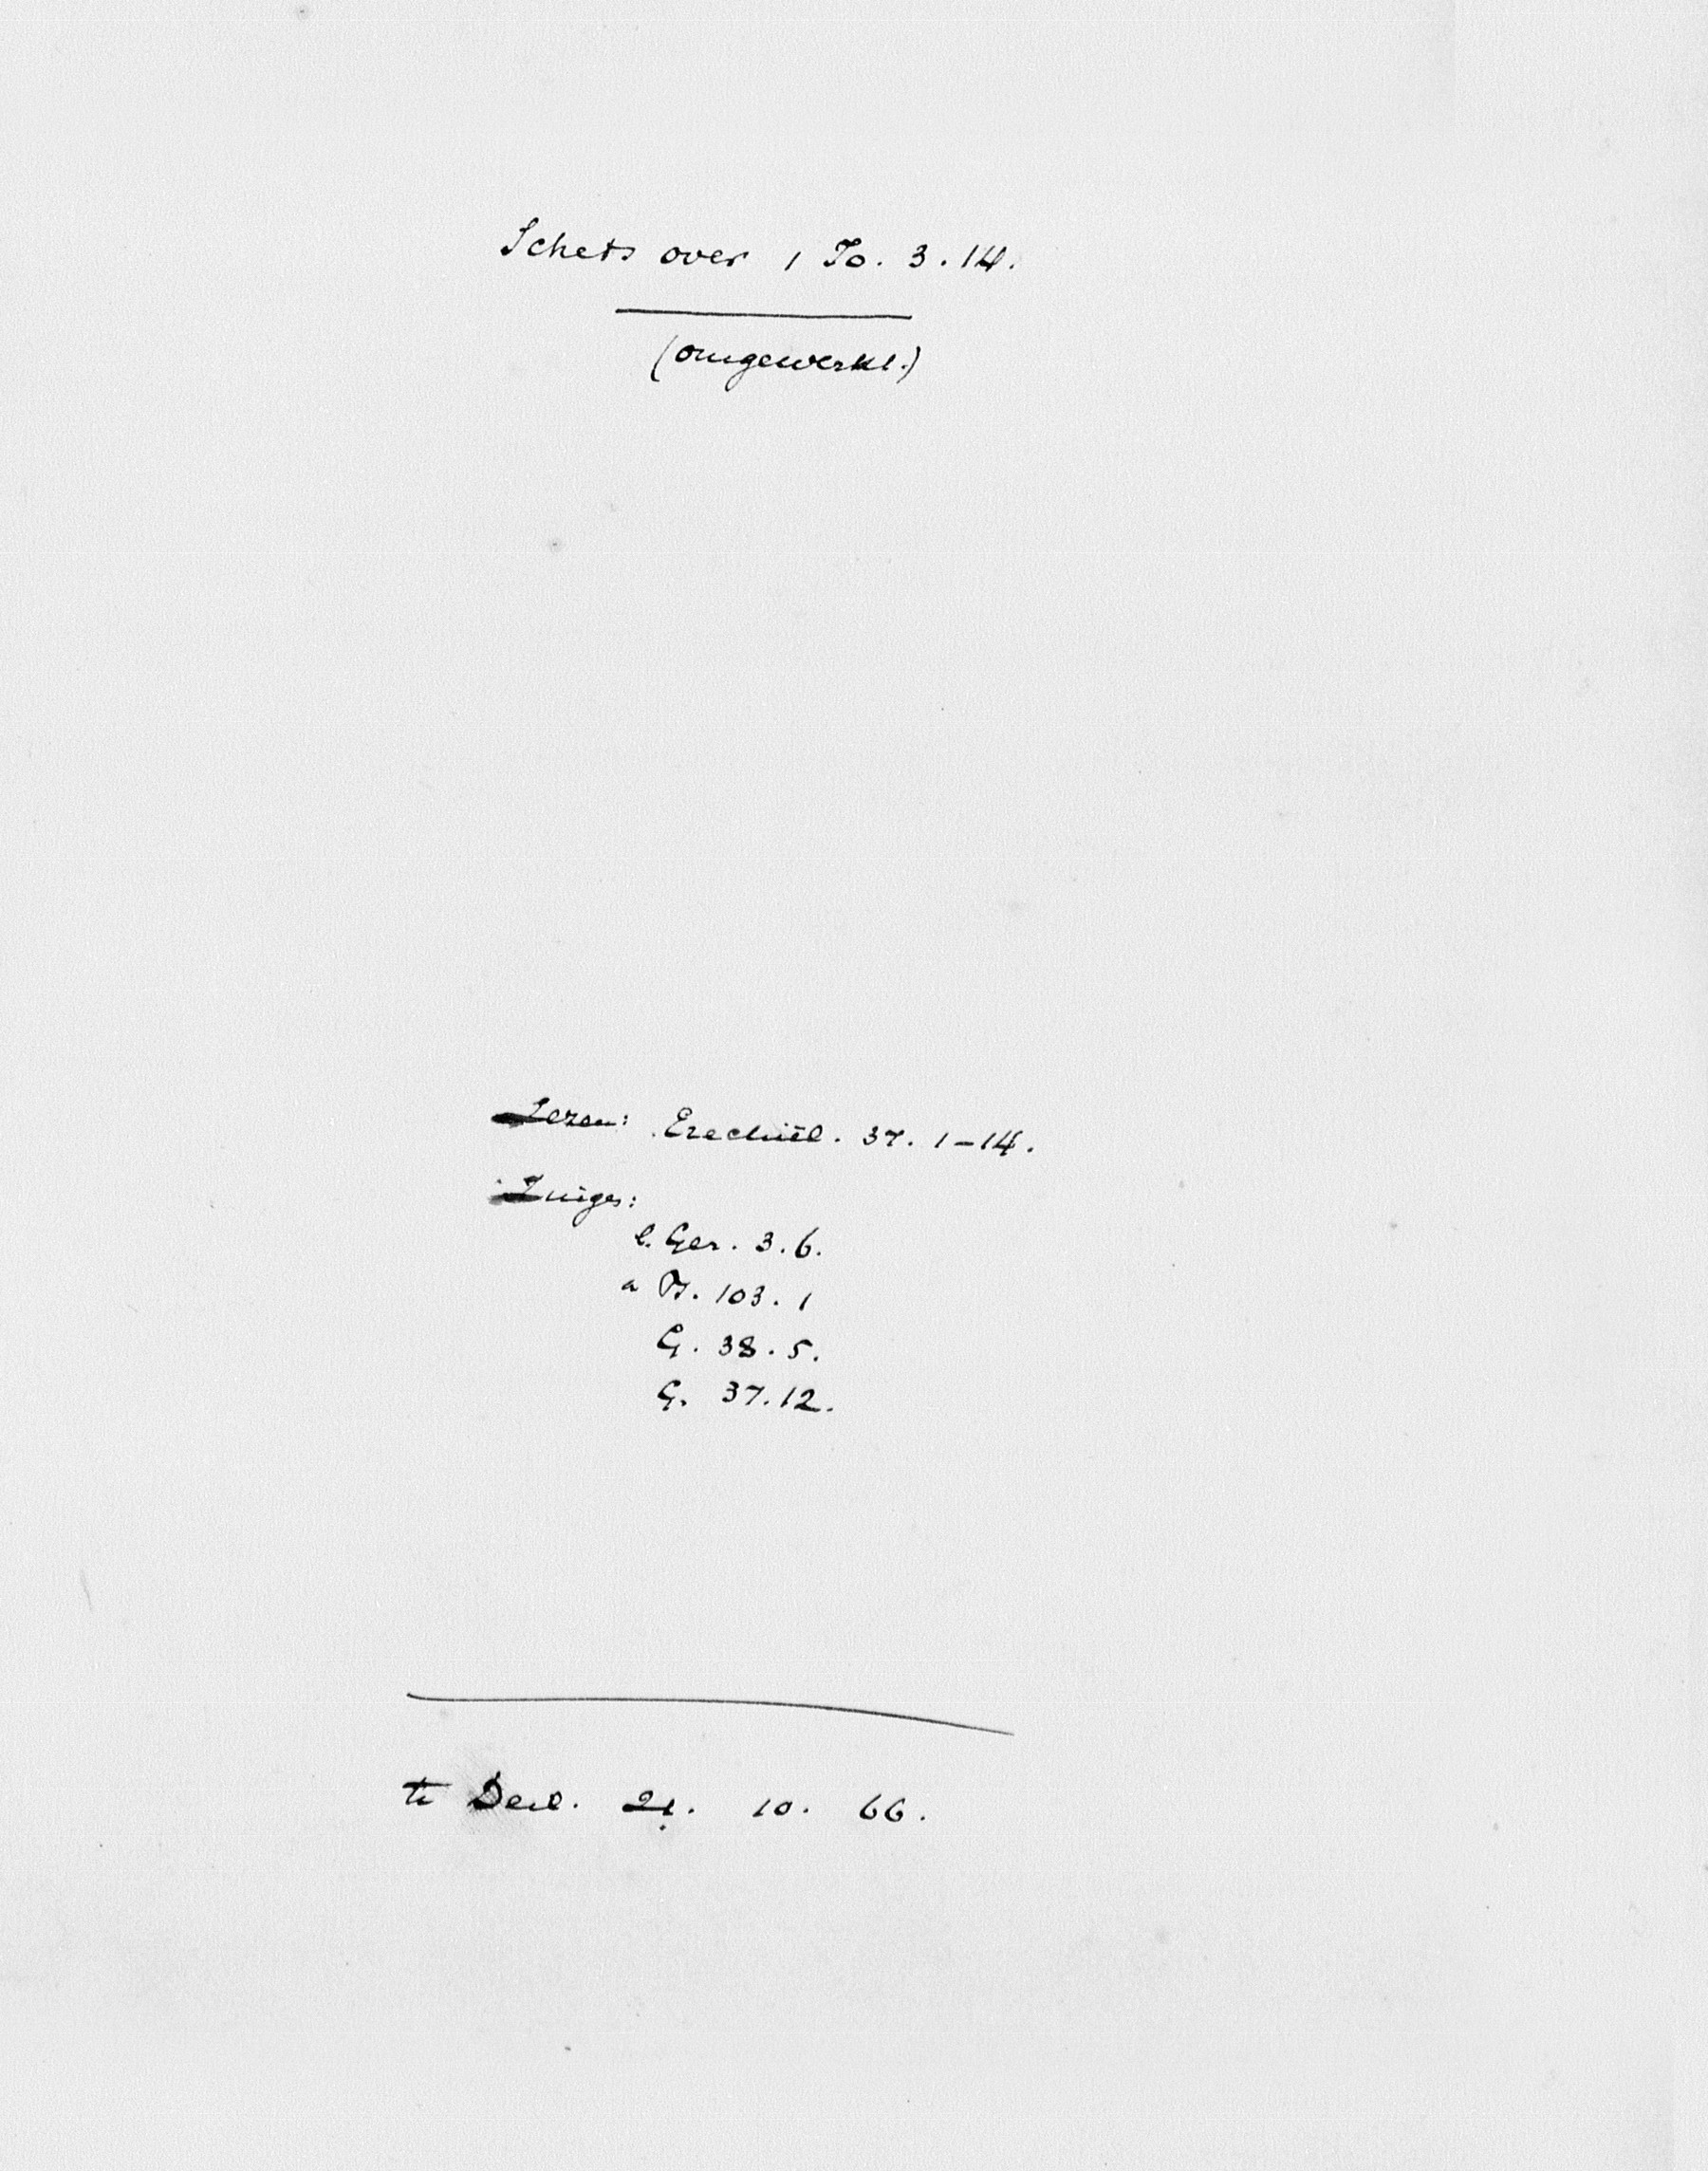 Schets over 1 Jo. 3.14.
(omgewerkt.)
Lezen: Ezechiël. 37. 1-14.
Zinge:
b. Gez. 3.6.
a Ps. 103. 1
G. 38.5.
G. 37.12.
te 21. 10. 66.